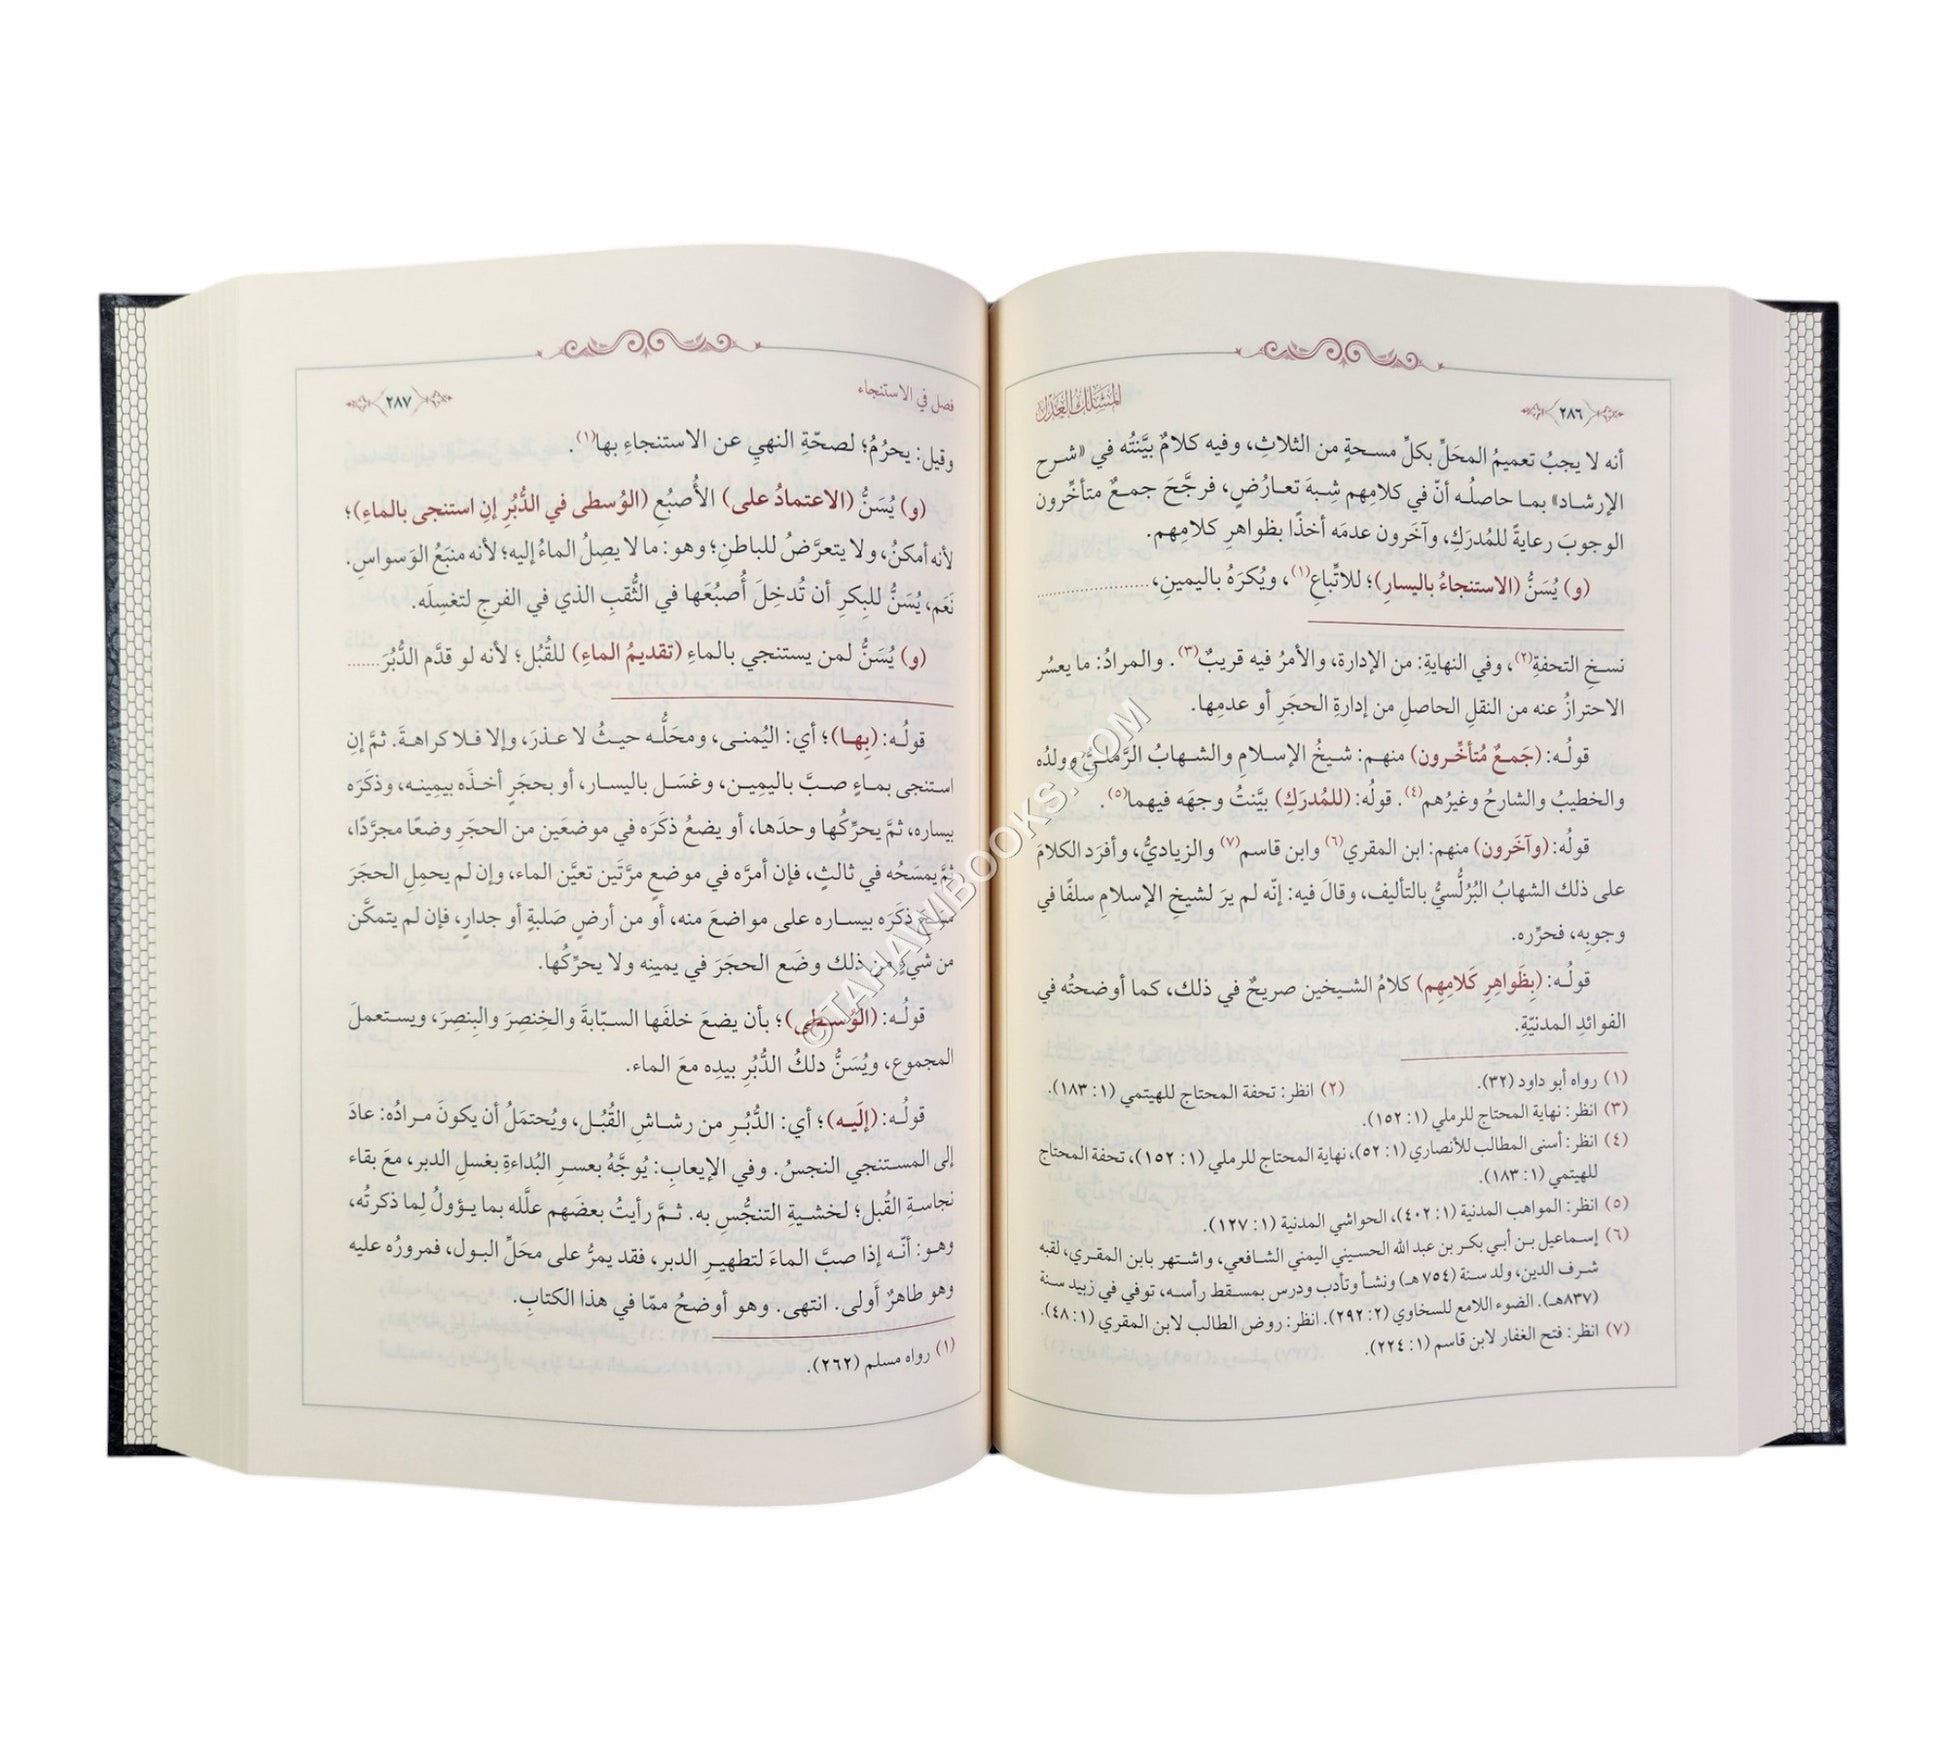 ﴿٢٨٦﴾
المسلك العدل
أنه لا يجبُ تعميمُ المحَلِّ بكلِّ مسحةٍ من الثلاثِ، وفيه كلامٌ بيَّنتُه في «شرح
الإرشاد» بما حاصلُه أنّ في كلامِهم شِبهَ تعارُضٍ، فرجَّحَ جمعٌ متأخِّرون
الوجوبَ رعايةً للمُدرَكِ، وآخَرون عدمَه أخذًا بظواهرِ كلامِهم.
(و) يُسَنُّ (الاستنجاءُ باليسارِ)؛ للاتِّباعِ(١)، ويُكرَهُ باليمينِ، ..............
نسخِ التحفةِ(٢)، وفي النهايةِ: من الإدارة، والأمرُ فيه قريبٌ(٣). والمرادُ: ما يعسُر
الاحترازُ عنه من النقلِ الحاصلِ من إدارةِ الحجَرِ أو عدمِها.
قولُه: (جَمعٌ مُتأخِّرون) منهم: شيخُ الإسلامِ والشهابُ الرَّمليُّ وولدُه
والخطيبُ والشارحُ وغيرُهم(٤). قولُه: (للمُدرَكِ) بيَّنتُ وجهَه فيهما(٥).
قولُه: (وآخَرون) منهم: ابن المقري(٦) وابن قاسم(٧) والزياديُّ، وأفرَد الكلامَ
على ذلك الشهابُ البُرُلُّسيُّ بالتأليف، وقالَ فيه: إنّه لم يرَ لشيخِ الإسلامِ سلفًا في
وجوبِه، فحرِّره.
قولُه: (بِظَواهرِ كَلامِهِم) كلامُ الشيخين صريحٌ في ذلك، كما أوضحتُه في
الفوائدِ المدنيّةِ.
(١) رواه أبو داود (٣٢). (٢) انظر: تحفة المحتاج للهيتمي (١: ١٨٣).
(٣) انظر: نهاية المحتاج للرملي (١: ١٥٢).
(٤) انظر: أسنى المطالب للأنصاري (١: ٥٢)، نهاية المحتاج للرملي (١: ١٥٢)، تحفة المحتاج
للهيتمي (١: ١٨٣).
(٥) انظر: المواهب المدنية (١: ٤٠٢)، الحواشي المدنية (١: ١٢٧).
(٦) إسماعيل بن أبي بكر بن عبد الله الحسيني اليمني الشافعي، واشتهر بابن المقري، لقبه
شرف الدين، ولد سنة (٧٥٤ هـ) ونشأ وتأدب ودرس بمسقط رأسه، توفي في زبيد سنة
(٨٣٧هـ). الضوء اللامع للسخاوي (٢: ٢٩٢). انظر: روض الطالب لابن المقري (١: ٤٨).
(٧) انظر: فتح الغفار لابن قاسم (١: ٢٢٤).
فصل في الاستنجاء
﴿٢٨٧﴾
وقيل: يحرُمُ؛ لصحّةِ النهيِ عن الاستنجاءِ بها(١).
(و) يُسَنُّ (الاعتمادُ على) الأُصبُعِ (الوُسطى في الدُّبُرِ إنِ استنجى بالماءِ)؛
لأنه أمكنُ، ولا يتعرَّضُ للباطنِ؛ وهو: ما لا يصِلُ الماءُ إليه؛ لأنه منبَعُ الوَسواسِ.
نَعَم، يُسَنُّ للبِكرِ أن تُدخِلَ أُصبُعَها في الثُّقبِ الذي في الفرجِ لتغسِلَه.
(و) يُسَنُّ لمن يستنجي بالماءِ (تقديمُ الماءِ) للقُبُل؛ لأنه لو قدَّم الدُّبُرَ ......
قولُه: (بِها)؛ أي: اليُمنى، ومحَلُّه حيثُ لا عذرَ، وإلا فلا كراهةَ. ثمَّ إنِ
استنجى بماءٍ صبَّ باليمِين، وغسَل باليسار، أو بحجَرٍ أخذَه بيمِينه، وذكَرَه
بيساره، ثمَّ يحرِّكُها وحدَها، أو يضعُ ذكَرَه في موضعَين من الحجَرِ وضعًا مجرَّدًا،
ثمَّ يمسَحُه في ثالثٍ، فإن أمرَّه في موضعٍ مرَّتَين تعيَّن الماء، وإن لم يحمِلِ الحجَرَ
مسَح ذكَرَه بيساره على مواضعَ منه، أو من أرضٍ صَلبةٍ أو جدارٍ، فإن لم يتمكَّن
من شيءٍ من ذلك وضَع الحجَرَ في يمينِه ولا يحرِّكُها.
قولُه: (الوُسطى)؛ بأن يضعَ خلفَها السبّابةَ والخِنصِرَ والبِنصِرَ، ويستعملَ
المجموع، ويُسَنُّ دلكُ الدُّبُرِ بيدِه معَ الماء.
قولُه: (إلَيه)؛ أي: الدُّبُرِ من رشاشِ القُبُل، ويُحتمَلُ أن يكونَ مرادُه: عادَ
إلى المستنجي النجسُ. وفي الإيعابِ: يُوجَّهُ بعسرِ البُداءةِ بغسلِ الدبر، معَ بقاء
نجاسةِ القُبل؛ لخشيةِ التنجُّسِ به. ثمَّ رأيتُ بعضَهم علَّله بما يؤولُ لِما ذكرتُه،
وهو: أنّه إذا صبَّ الماءَ لتطهيرِ الدبر، فقد يمرُّ على محَلِّ البول، فمرورُه عليه
وهو طاهرٌ أَولى. انتهى. وهو أوضحُ ممّا في هذا الكتابِ.
(١) رواه مسلم (٢٦٢).
©TAHAWIBOOKS.COM